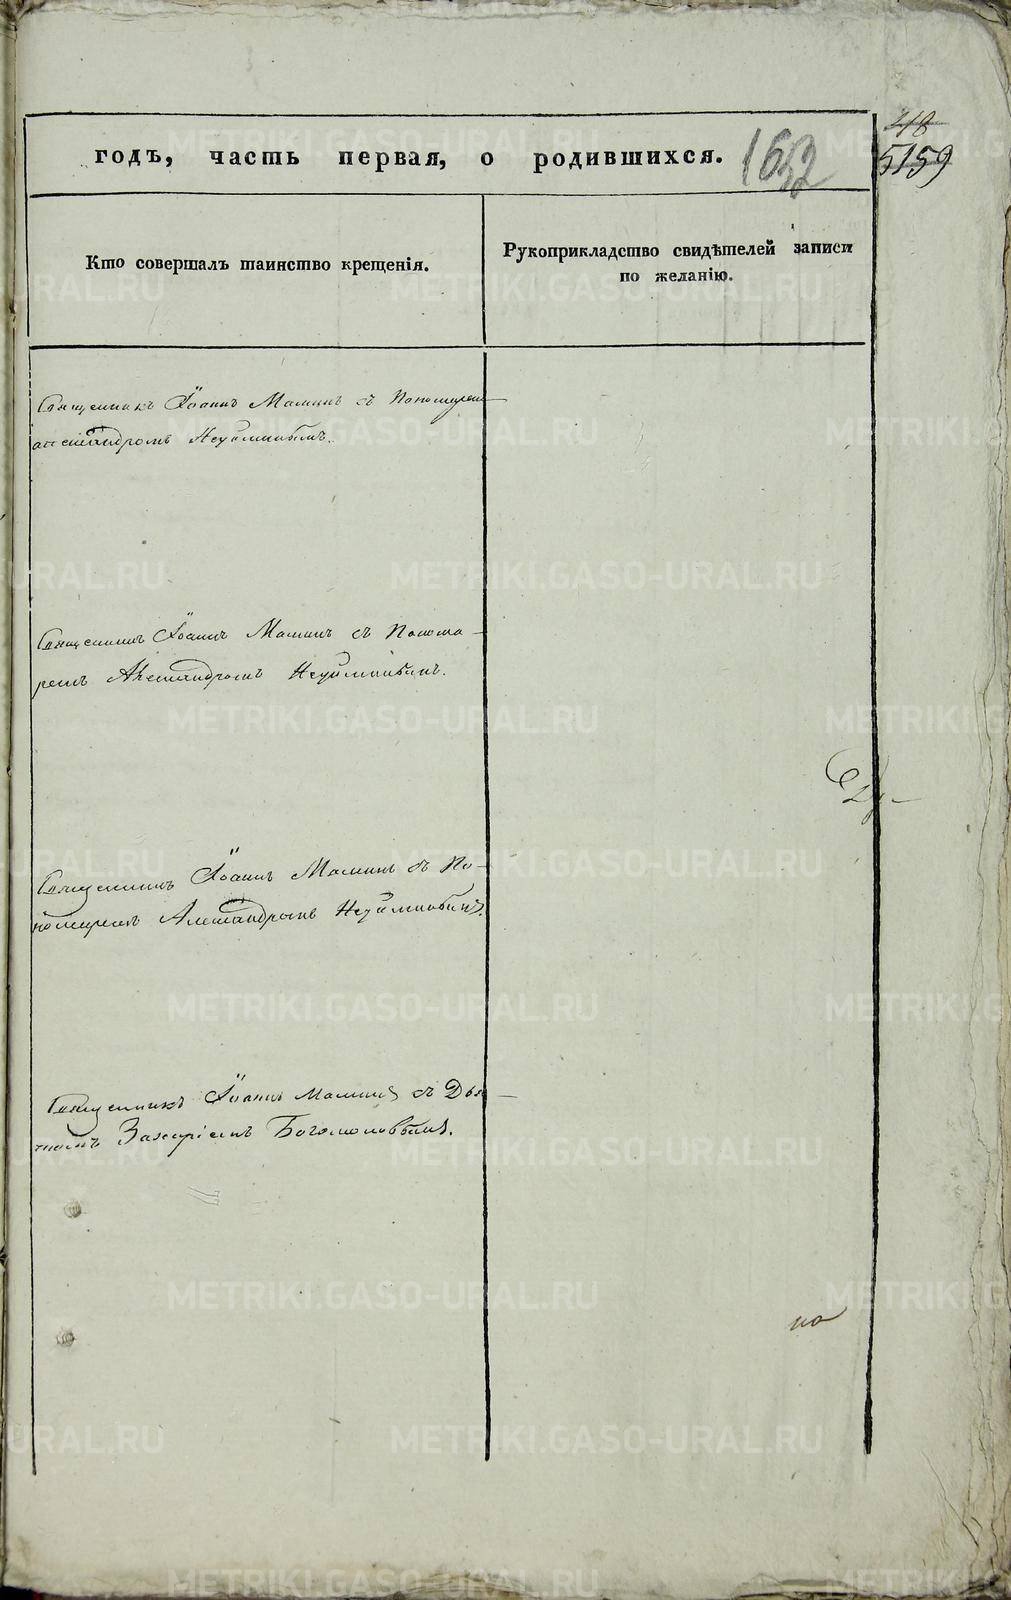 годъ, часть первая, о родившихся.
5159
Кто совершалъ таинство крещенія.
Рукоприкладство свидѣтелей записи
по желанію.
Священникъ Іоаннъ Маминъ съ Пономарем
Александромъ Неуйминымъ.
Священникъ Іоаннъ Маминъ съ Понома-
ремъ Александромъ Неуйминымъ.
Священникъ Іоаннъ Маминъ съ По-
номаремъ Александромъ Неуйминымъ.
Священникъ Іоаннъ Маминъ съ Дья-
комъ Захаріемъ Богомоловымъ.
по
METRIKI.GASO-URAL.RU